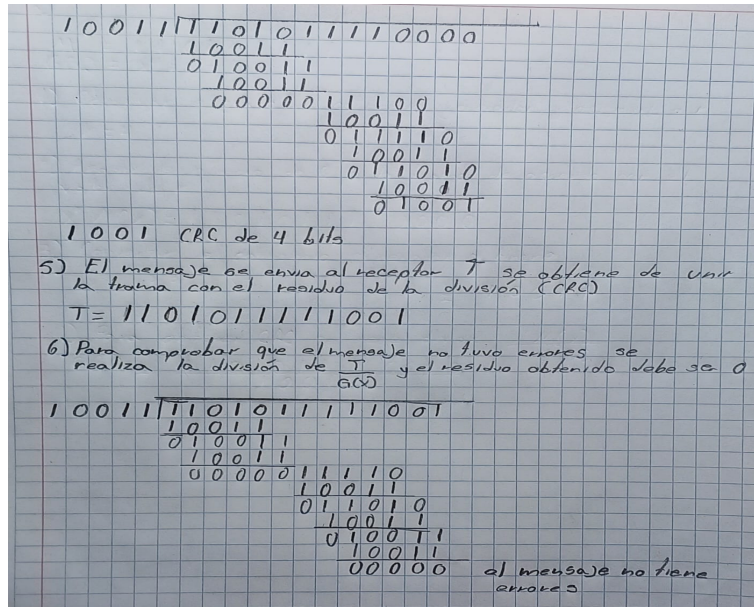 10011 1101011110000
10011
010011
10011
0000011100
10011
011110
10011
011010
10011
01001
1001 CRC de 4 bits
5) El mensaje se envia al receptor T se obtiene de unir
la trama con el residuo de la división (CRC)
T = 1101011111001
6) Para comprobar que el mensaje no tuvo errores se
realiza la división de T/G(x) y el residuo obtenido debe se 0
10011 1101011111001
10011
010011
10011
0000011110
10011
011010
10011
010011
10011
00000 al mensaje no tiene
errores